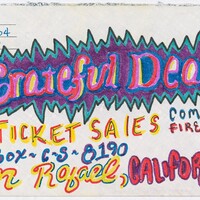 04
Grateful Dea
TICKET SALES COM
FIRE
BOX~C-S~8190
n Rafael, CALIFOR